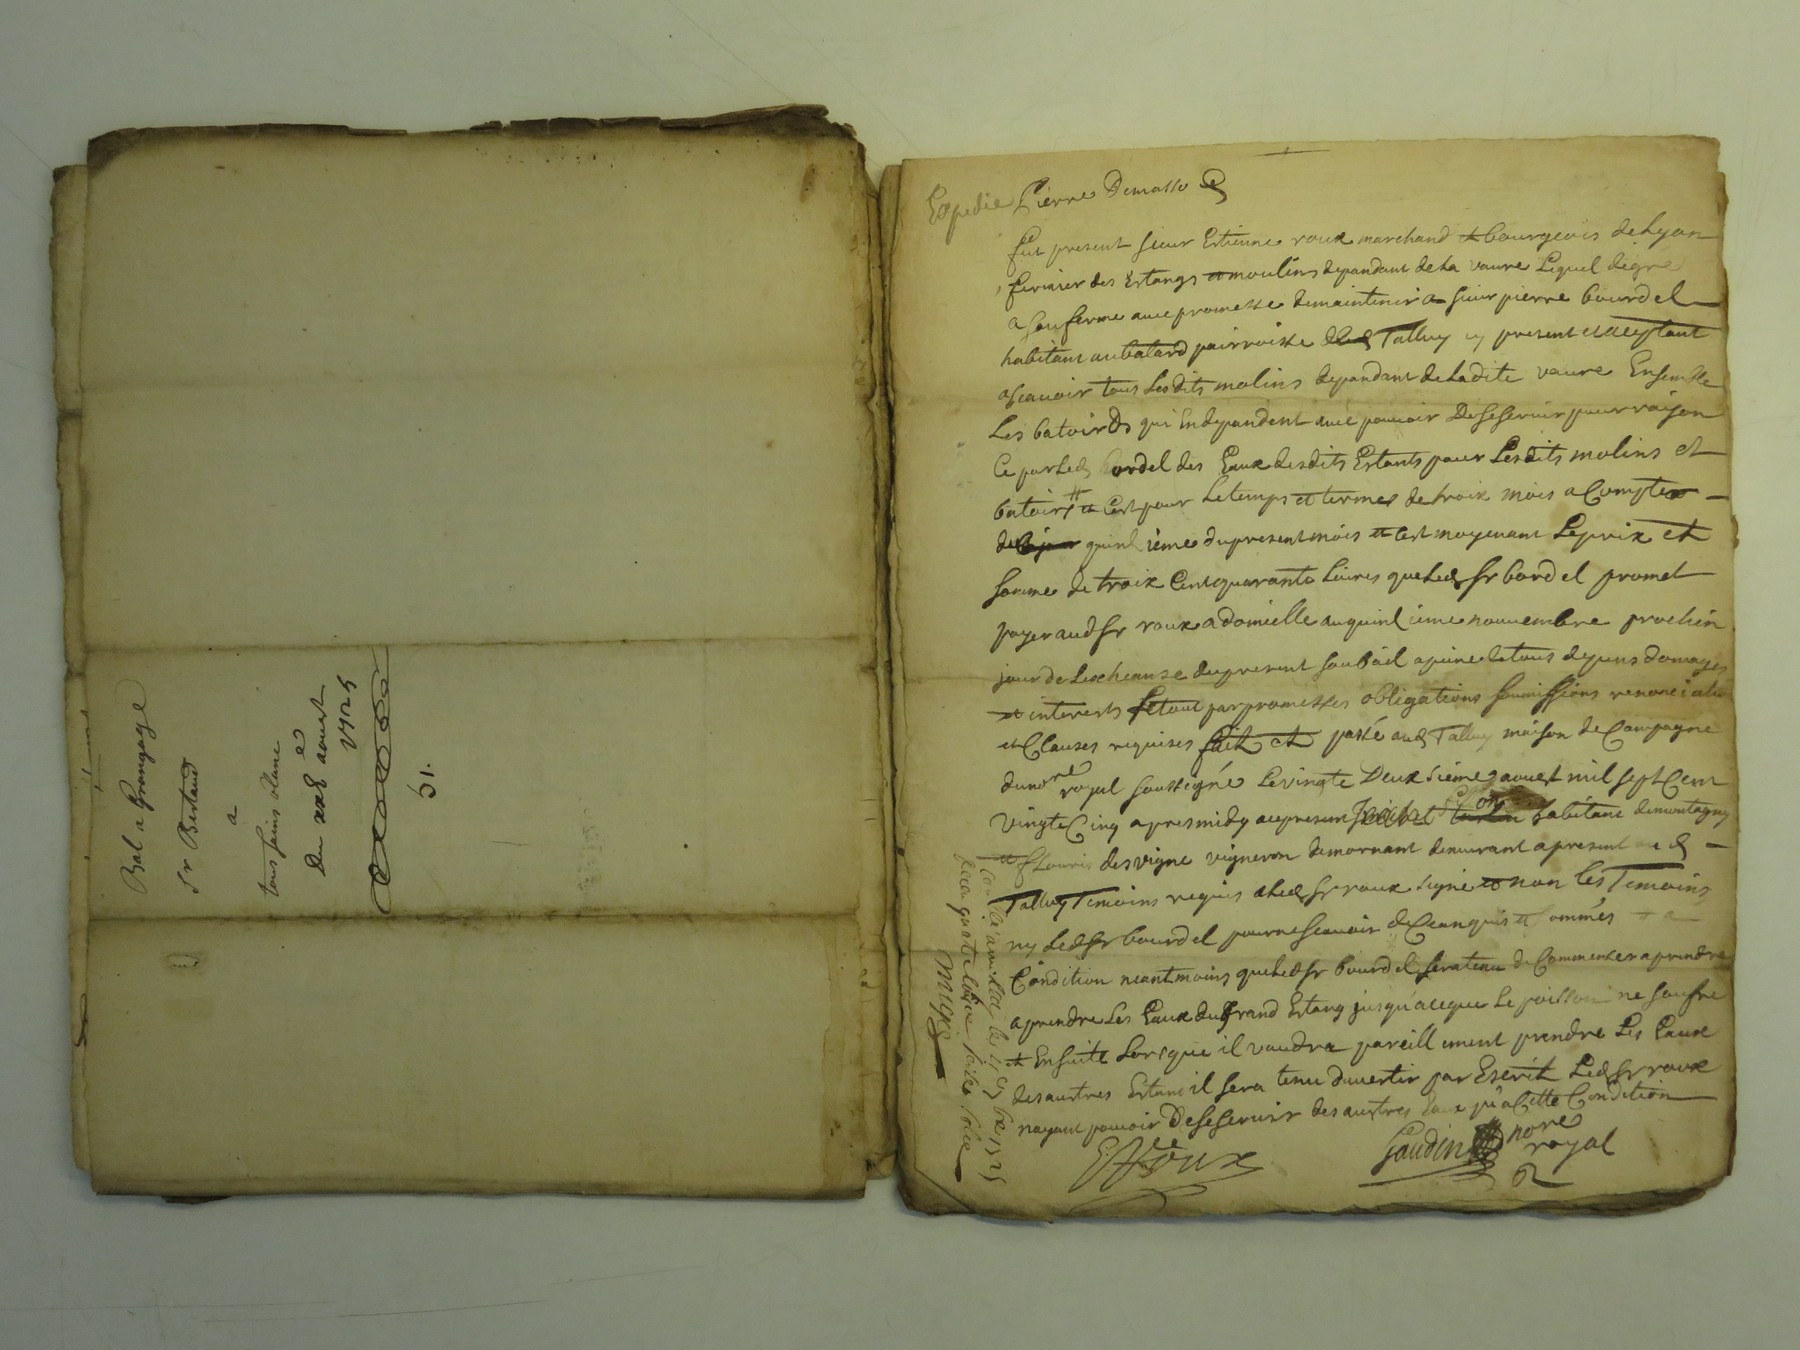 Bal a Grangage
Sr Bertaud
a
toussains olanie
Du xxe aoust
1725
51.
Expedie Pierre Demasso
Fut present sieur Estienne roux marchand et bourgeois de Lyon
fermier des Estangs et moulins depandant de la vaure Lequel de gre
a sou ferme avec promesse de maintenir a sieur pierre bourdel
habitant au batard pairroisse Talluy cy present et aceptant
ascavoir tous Lesdits molins depandant de Ladite vaure Ensemble
Les batoirds qui En depandent avec pouvoir De se servir pour raison
Ce par Led bordel des Eaux desdits Estants pour Lesdits molins et
batoirs et C'est pour Le temps et terme de troix mois a Compter
quinzieme du present mois et c'est moyenant Le prix et
somme de troix Cent quarante Livres que Led Sr bordel promet
payer aud Sr roux a domicille au quinzieme nouvembre prochin
jour de Lescheanse du present soubail a peine de tous depans domages
et interests et tout par promesses obligations soumissions renonciation
et Clauses requises fait et passé aud Talluy maison de Campagne
du nore royal soussigné Le vingte Deuxsieme aoust mil sept Cent
vingte Cinq apres midy habitant de montagny
desvigne vigneron de mornant demeurant a present aud
Talluy Temoins requis et Led Sr roux signé et non les Temoins
ny Led Sr bourdel pour ne scavoir de Ce anquis et sommés
Condition neantmoins que Led Sr bourdel sera tenu de Commencer a prendre
a prendre Les Eaux du Grand Estang jusqu'a ce que Le poisson ne soufre
et En suite Lorsque il voudra pareillement prendre Les Eaux
des austres Estans il sera tenu d'avertir par Escrit Led Sr roux
nayant pouvoir De se servir des austres Eaux qu'a Cette Condition
E Roux
Gaudin nore
royal